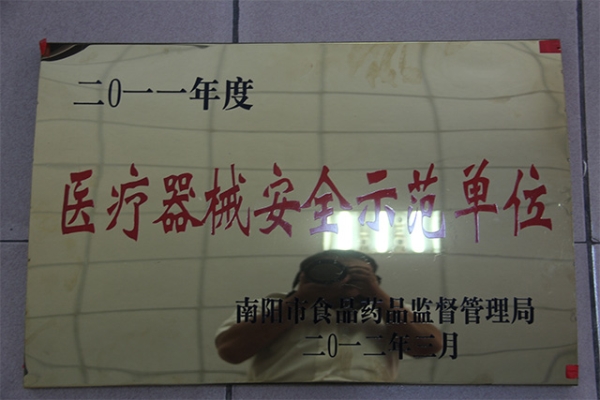 二0一一年度
医疗器械安全示范单位
南阳市食品药品监督管理局
二0一二年三月